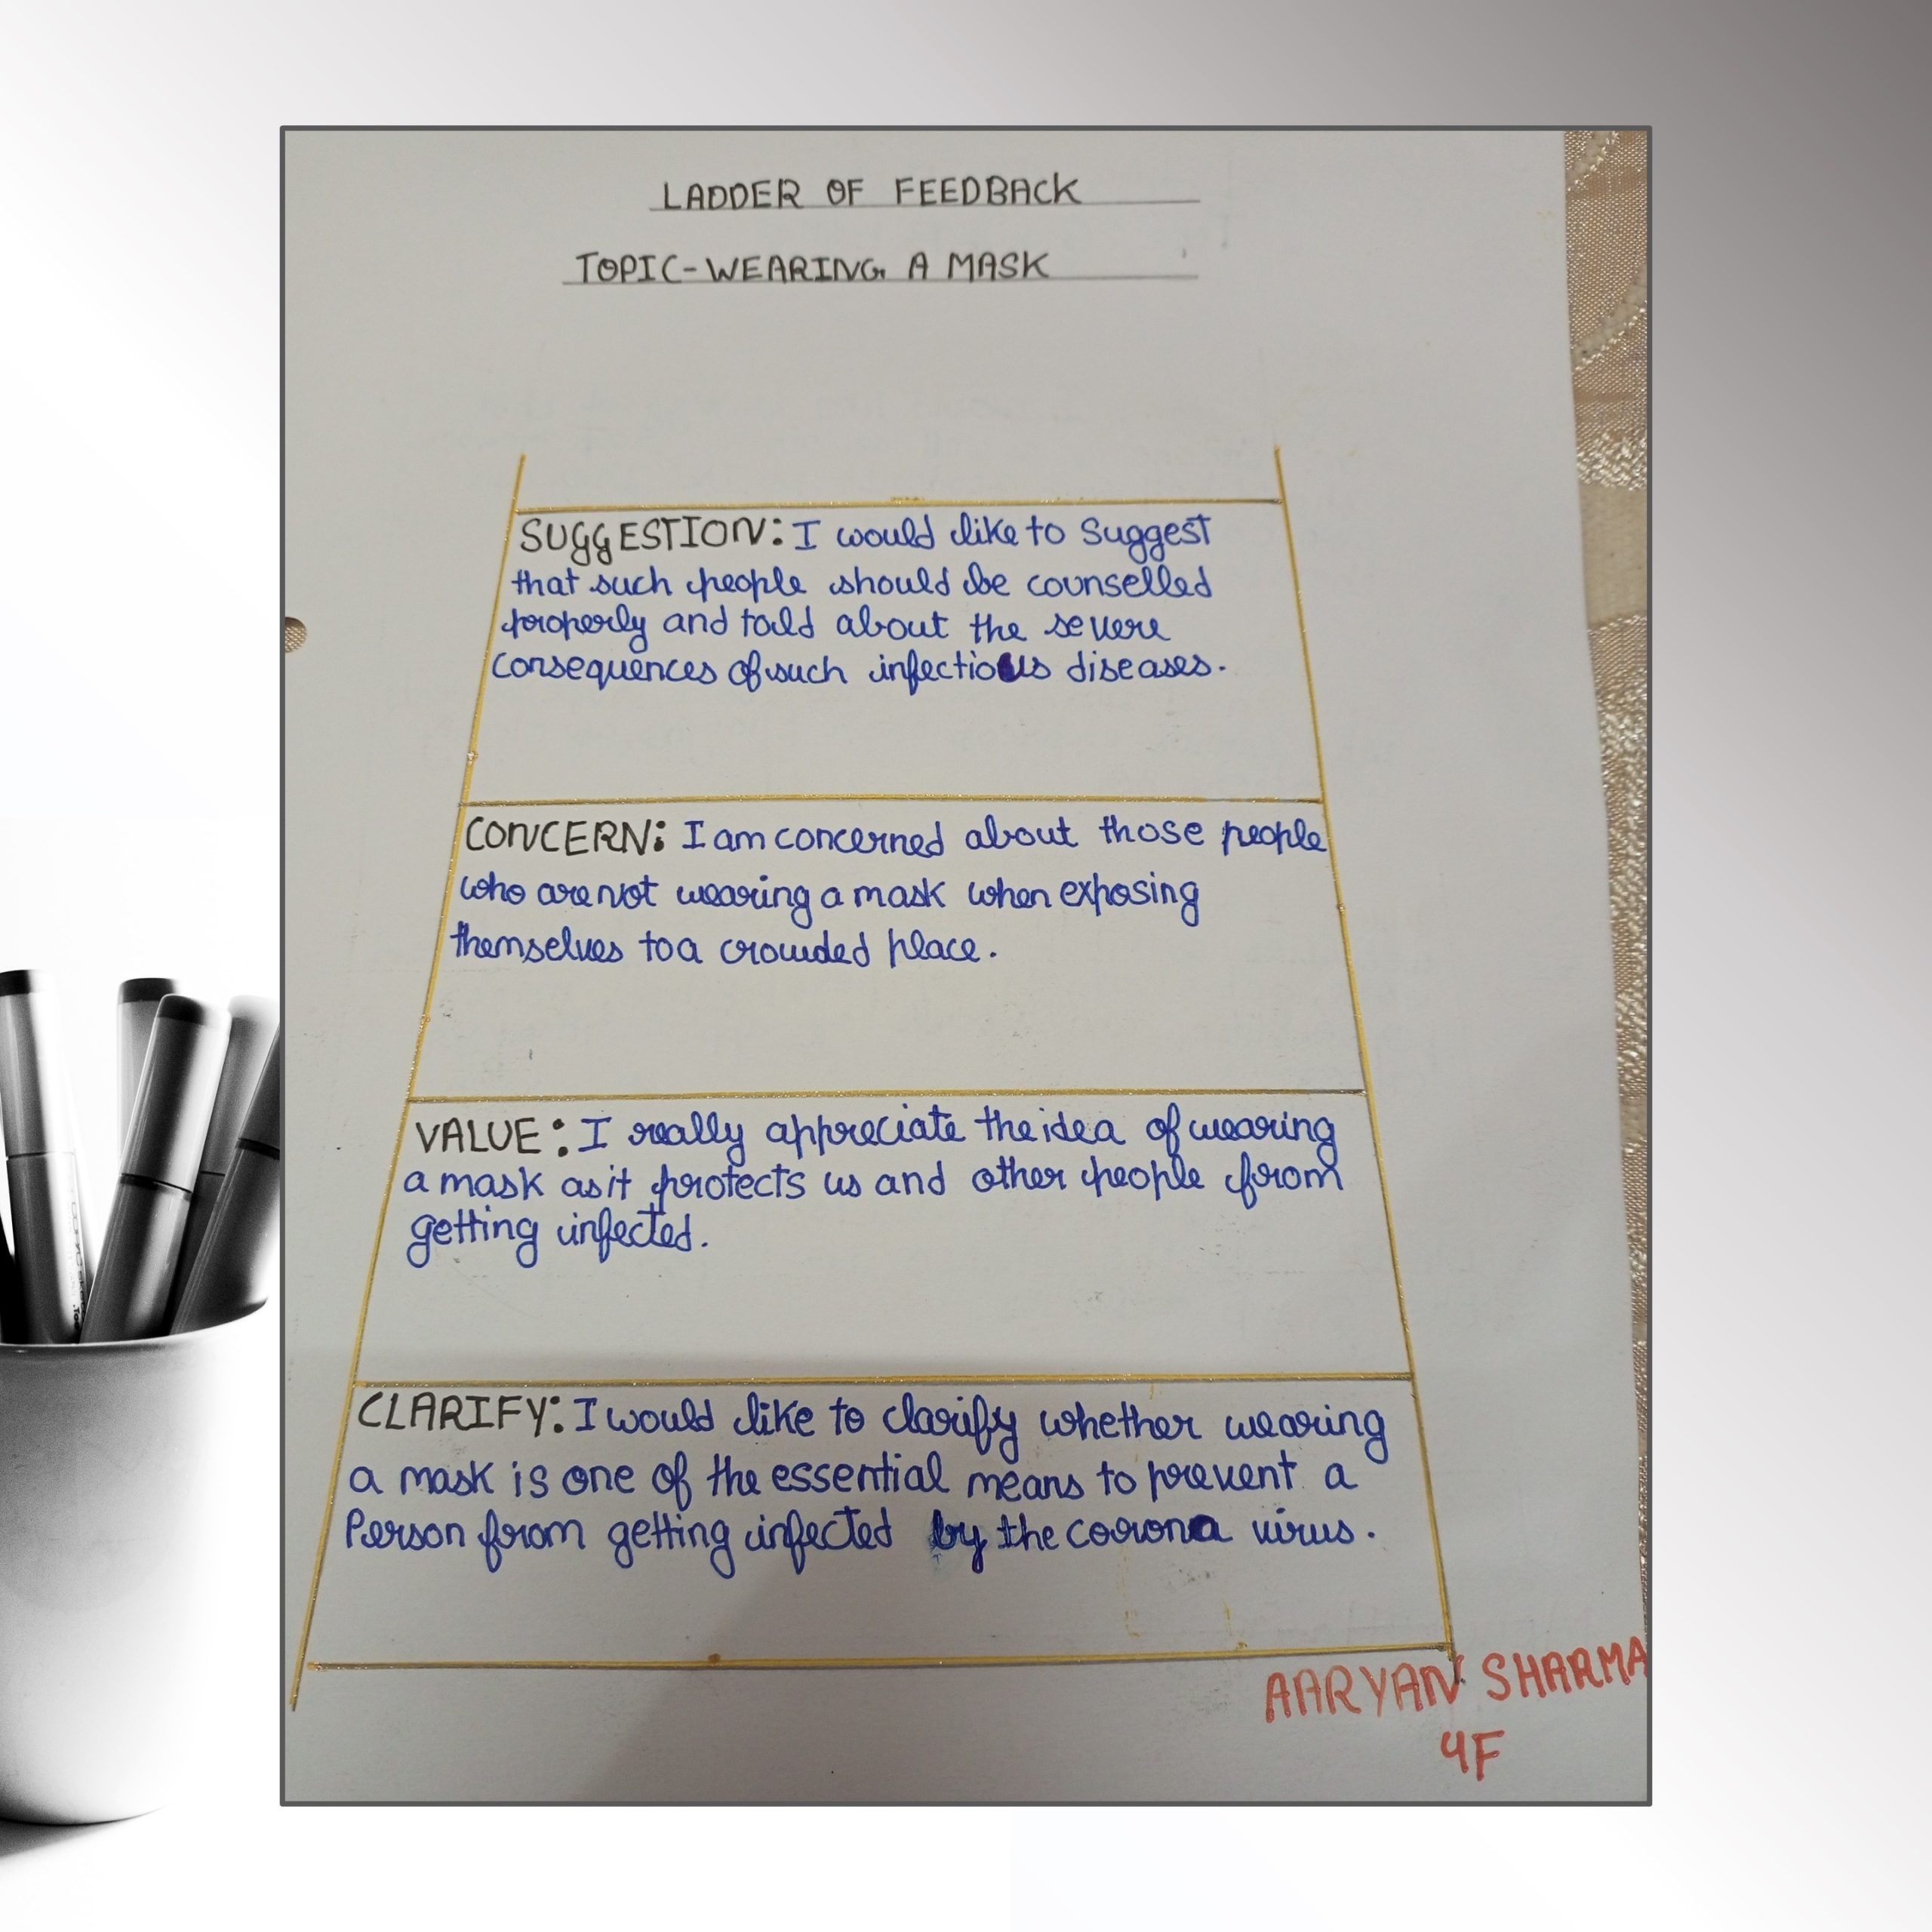 LADDER OF FEEDBACK
TOPIC-WEARING A MASK
SUGGESTION: I would like to Suggest
that such people should be counselled
properly and told about the severe
consequences of such infectious diseases.
CONCERN: I am concerned about those people
who are not wearing a mask when exposing
themselves to a crowded place.
VALUE: I really appreciate the idea of wearing
a mask as it protects us and other people from
getting infected.
CLARIFY: I would like to clarify whether wearing
a mask is one of the essential means to prevent a
Person from getting infected by the corona virus.
AARYAN SHARMA
4F